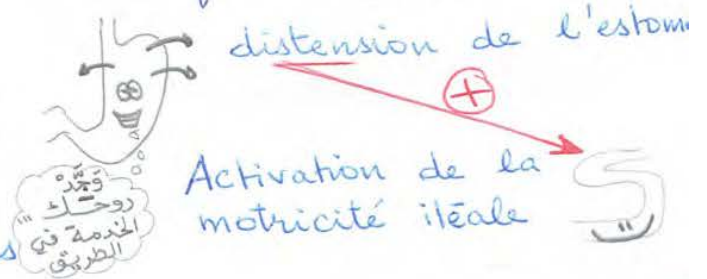 distension de l'estom
+
Activation de la
motricité iléale
وَجَّدْ
روحك ...
الخدمة في
الطريق
s